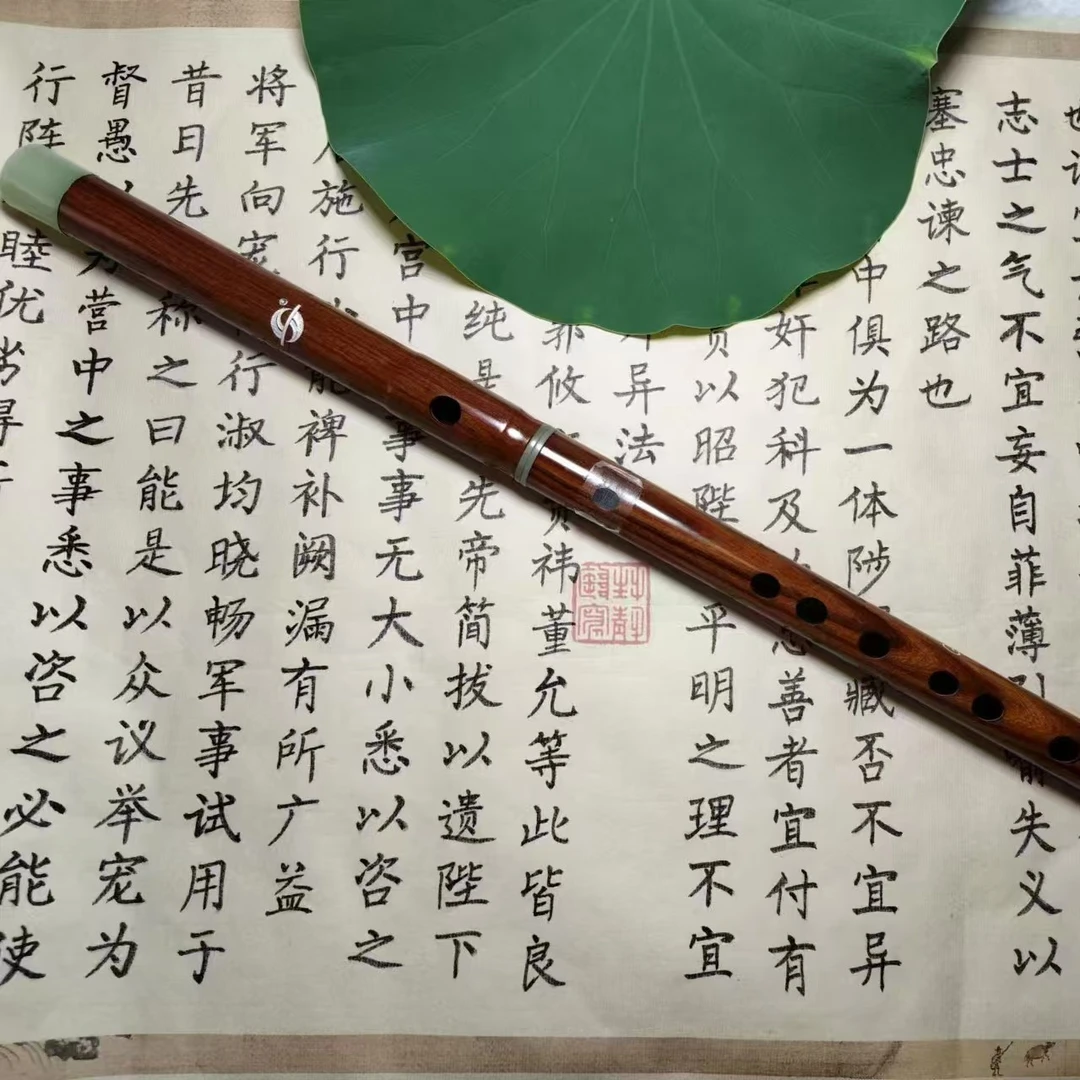 志士之气不宜妄自菲薄喻失义以
塞忠谏之路也
中俱为一体陟臧否不宜异
奸犯科及忠善者宜付有
以昭陛平明之理不宜
异法
郭攸祎董允等此皆良
纯是先帝简拔以遗陛下
宫中事事无大小悉以咨之
施行能裨补阙漏有所广益
将军向宠行淑均晓畅军事试用于
昔日先称之曰能是以众议举宠为
督愚为营中之事悉以咨之必能使
行阵睦优劣得